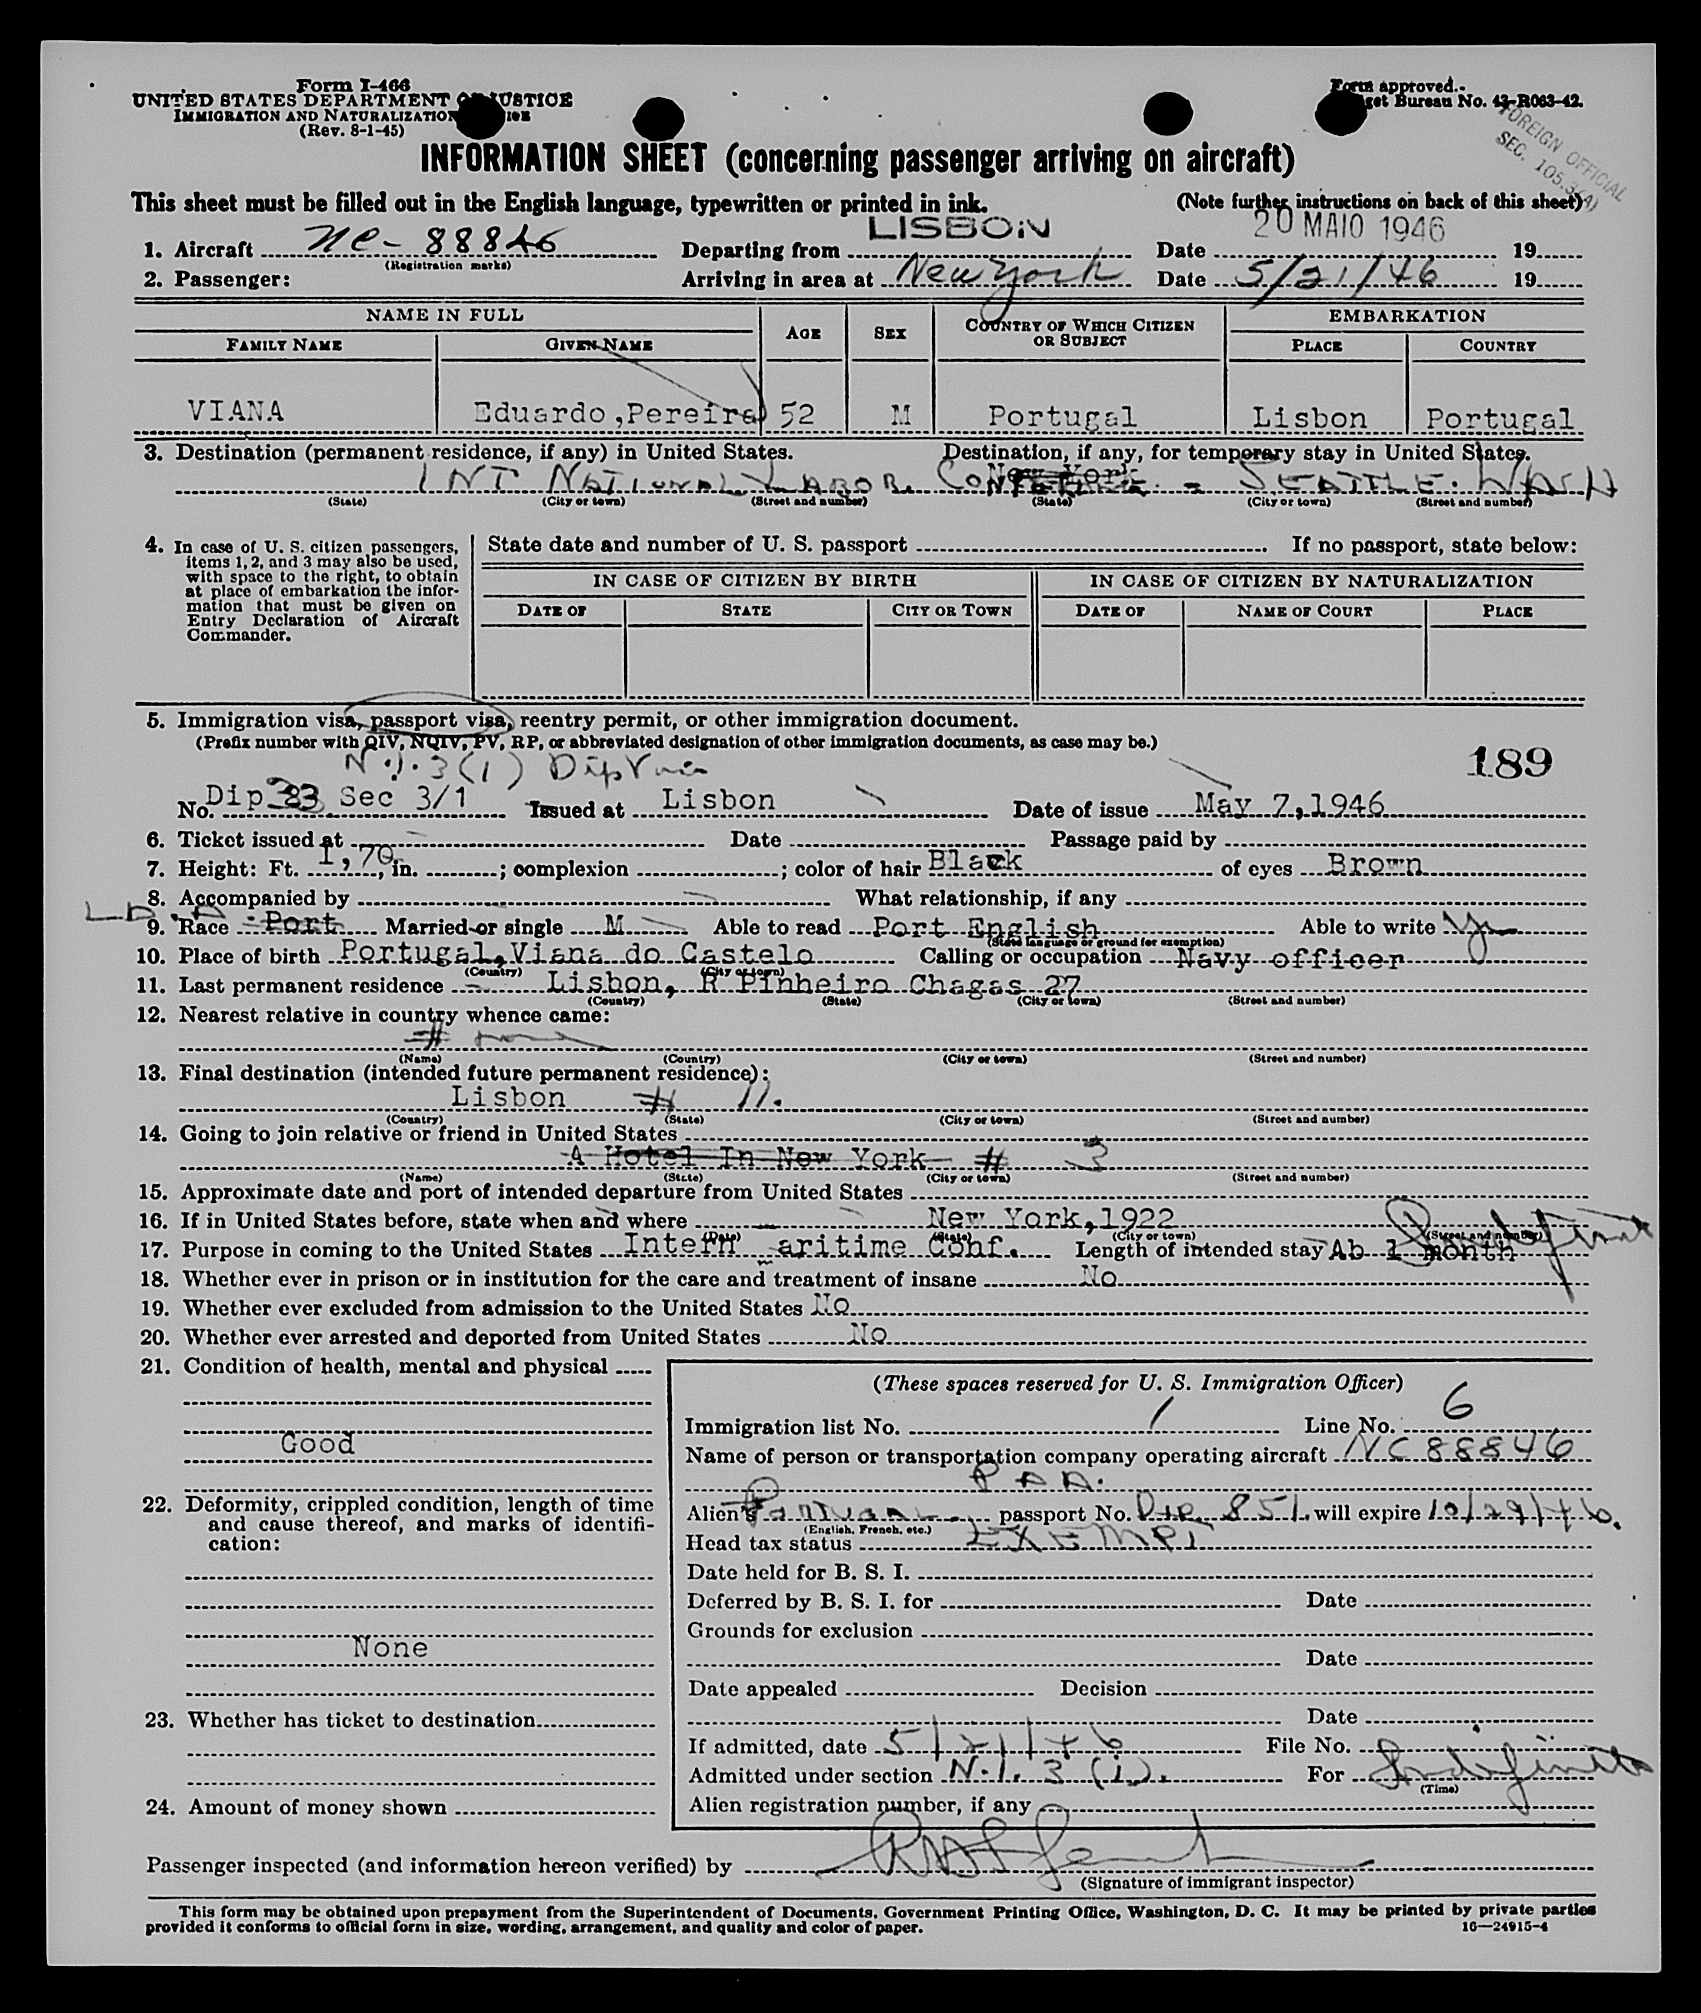 Form I-466
UNITED STATES DEPARTMENT OF JUSTICE
IMMIGRATION AND NATURALIZATION SERVICE
(Rev. 8-1-45)
Form approved.
Budget Bureau No. 43-R063-42.
FOREIGN OFFICIAL
SEC. 105.3(4)
INFORMATION SHEET (concerning passenger arriving on aircraft)
This sheet must be filled out in the English language, typewritten or printed in ink. (Note further instructions on back of this sheet)
1. Aircraft NC-88846 Departing from LISBON Date 20 MAIO 1946 19
(Registration marks)
2. Passenger: Arriving in area at New York Date 5/21/46 19
NAME IN FULL AGE SEX COUNTRY OF WHICH CITIZEN OR SUBJECT EMBARKATION
FAMILY NAME GIVEN NAME PLACE COUNTRY
VIANA Eduardo,Pereira 52 M Portugal Lisbon Portugal
3. Destination (permanent residence, if any) in United States. Destination, if any, for temporary stay in United States.
New York
INT NATIONAL LABOR CONFERENCE - SEATTLE. WASH
(State) (City or town) (Street and number) (State) (City or town) (Street and number)
4. In case of U. S. citizen passengers, items 1, 2, and 3 may also be used, with space to the right, to obtain at place of embarkation the information that must be given on Entry Declaration of Aircraft Commander.
State date and number of U. S. passport If no passport, state below:
IN CASE OF CITIZEN BY BIRTH IN CASE OF CITIZEN BY NATURALIZATION
DATE OF STATE CITY OR TOWN DATE OF NAME OF COURT PLACE
5. Immigration visa, passport visa, reentry permit, or other immigration document.
(Prefix number with QIV, NQIV, PV, RP, or abbreviated designation of other immigration documents, as case may be.)
N.I. 3(1) Dip Visa
189
No. Dip 33 Sec 3/1 Issued at Lisbon Date of issue May 7,1946
6. Ticket issued at Date Passage paid by
7. Height: Ft. 1,70, in. ; complexion ; color of hair Black of eyes Brown
8. Accompanied by What relationship, if any
9. Race Port Married or single M Able to read Port English Able to write Yes
(State language or ground for exemption)
10. Place of birth Portugal,Viana do Castelo Calling or occupation Navy officer
(Country) (City or town)
11. Last permanent residence Lisbon, R Pinheiro Chagas 27
(Country) (State) (City or town) (Street and number)
12. Nearest relative in country whence came:
# none
(Name) (Country) (City or town) (Street and number)
13. Final destination (intended future permanent residence):
Lisbon # 11.
(Country) (State) (City or town) (Street and number)
14. Going to join relative or friend in United States
A Hotel In New York # 3
(Name) (State) (City or town) (Street and number)
15. Approximate date and port of intended departure from United States
16. If in United States before, state when and where New York,1922
(Date) (State) (City or town) (Street and number)
17. Purpose in coming to the United States Intern maritime Conf. Length of intended stay Ab 1 month Indefinite
18. Whether ever in prison or in institution for the care and treatment of insane No
19. Whether ever excluded from admission to the United States No
20. Whether ever arrested and deported from United States No
21. Condition of health, mental and physical
Good
22. Deformity, crippled condition, length of time and cause thereof, and marks of identification:
None
23. Whether has ticket to destination
24. Amount of money shown
(These spaces reserved for U. S. Immigration Officer)
Immigration list No. 1 Line No. 6
Name of person or transportation company operating aircraft NC 88846
P A A.
Alien's Portugal passport No. Dip. 851. will expire 10/29/46.
(English, French, etc.)
Head tax status EXEMPT
Date held for B. S. I.
Deferred by B. S. I. for Date
Grounds for exclusion
Date
Date appealed Decision
Date
If admitted, date 5/21/46 File No.
Admitted under section N.I. 3 (1). For Indefinite
(Time)
Alien registration number, if any
Passenger inspected (and information hereon verified) by
(Signature of immigrant inspector)
This form may be obtained upon prepayment from the Superintendent of Documents, Government Printing Office, Washington, D. C. It may be printed by private parties
provided it conforms to official form in size, wording, arrangement, and quality and color of paper. 16—24915-4